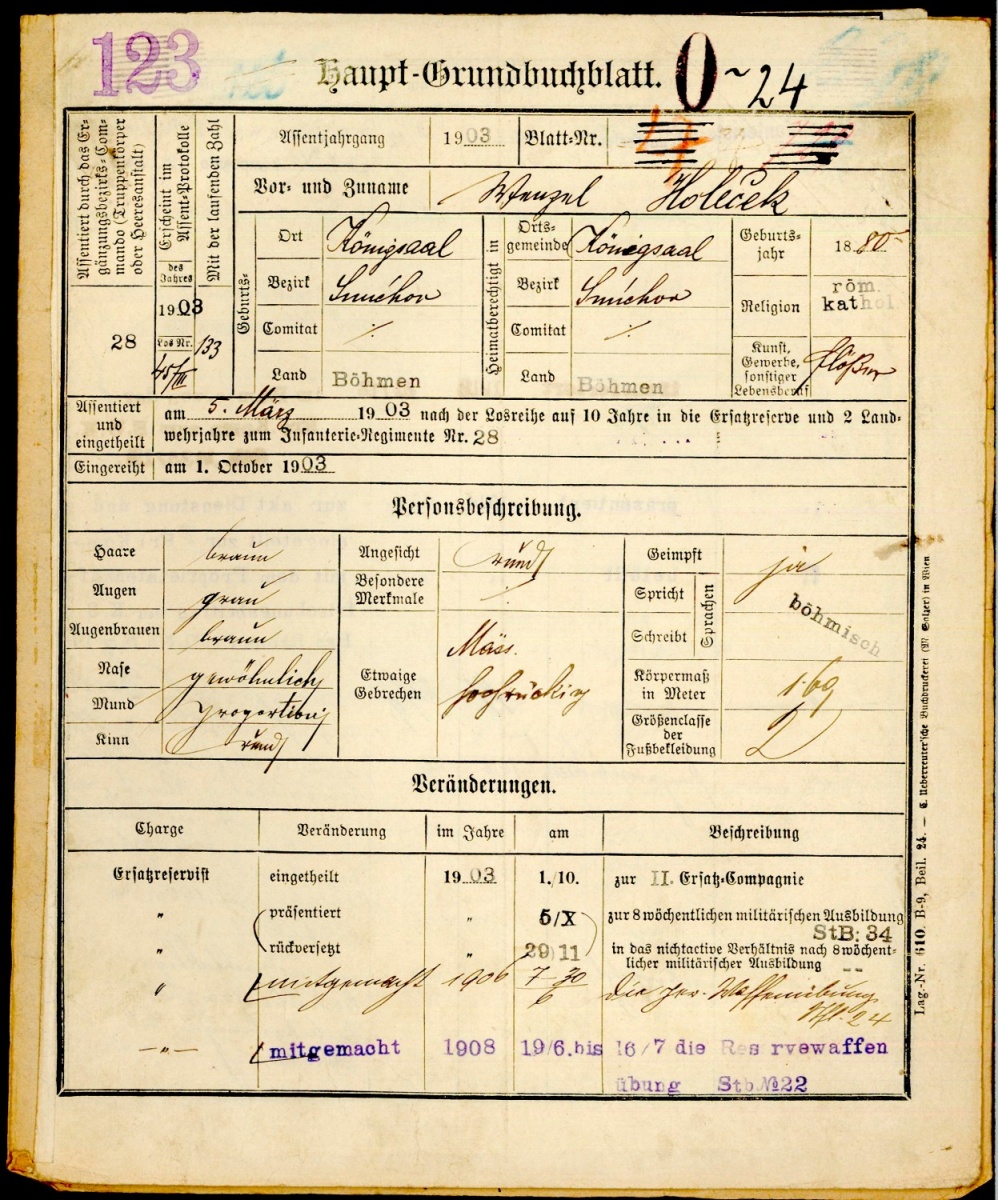 123
Haupt-Grundbuchblatt. 0-24
Assentiert durch das Er-
gänzungsbezirks-Com-
mando (Truppenkörper
oder Heeresanstalt)
28
Erscheint im
Assent-Protokolle
des
Jahres
1903
Los Nr.
45/III
Mit der laufenden Zahl
133
Assentjahrgang 1903 Blatt-Nr.
Vor- und Zuname Wenzel Holeček
Geburts-
Ort Königsaal
Bezirk Smichov
Comitat ·/.
Land Böhmen
Heimatberechtigt in
Orts-
gemeinde Königsaal
Bezirk Smichov
Comitat ·/.
Land Böhmen
Geburts-
jahr 1880
Religion röm.
kathol.
Kunst,
Gewerbe,
sonstiger
Lebensberuf Flößer
Assentiert
und
eingetheilt
am 5. März 1903 nach der Losreihe auf 10 Jahre in die Ersatzreserve und 2 Land-
wehrjahre zum Infanterie-Regimente Nr. 28
Eingereiht am 1. October 1903
Personsbeschreibung.
Haare braun
Augen grau
Augenbrauen braun
Nase gewöhnlich
Mund proportion.
Kinn rund
Angesicht rund
Besondere
Merkmale ·/.
Etwaige
Gebrechen Mäss.
hochrückig
Geimpft ja
Spricht
Schreibt
Sprachen
böhmisch
Körpermaß
in Meter 1·69
Größenclasse
der
Fußbekleidung 2
Veränderungen.
Charge Veränderung im Jahre am Beschreibung
Ersatzreservist eingetheilt 1903 1./10. zur II. Ersatz-Compagnie
" präsentiert " 5/X zur 8 wöchentlichen militärischen Ausbildung
StB: 34
" rückversetzt " 29)11 in das nichtactive Verhältnis nach 8 wöchent-
licher militärischer Ausbildung --
" mitgemacht 1906 7-30/6 die Waffenübung
24
-"- mitgemacht 1908 19/6.bis 16/7 die Res rvewaffen
übung Stb.№22
Lag.-Nr. 610. B-9, Beil. 24. — C. Ueberreuter'sche Buchdruckerei (M. Salzer) in Wien